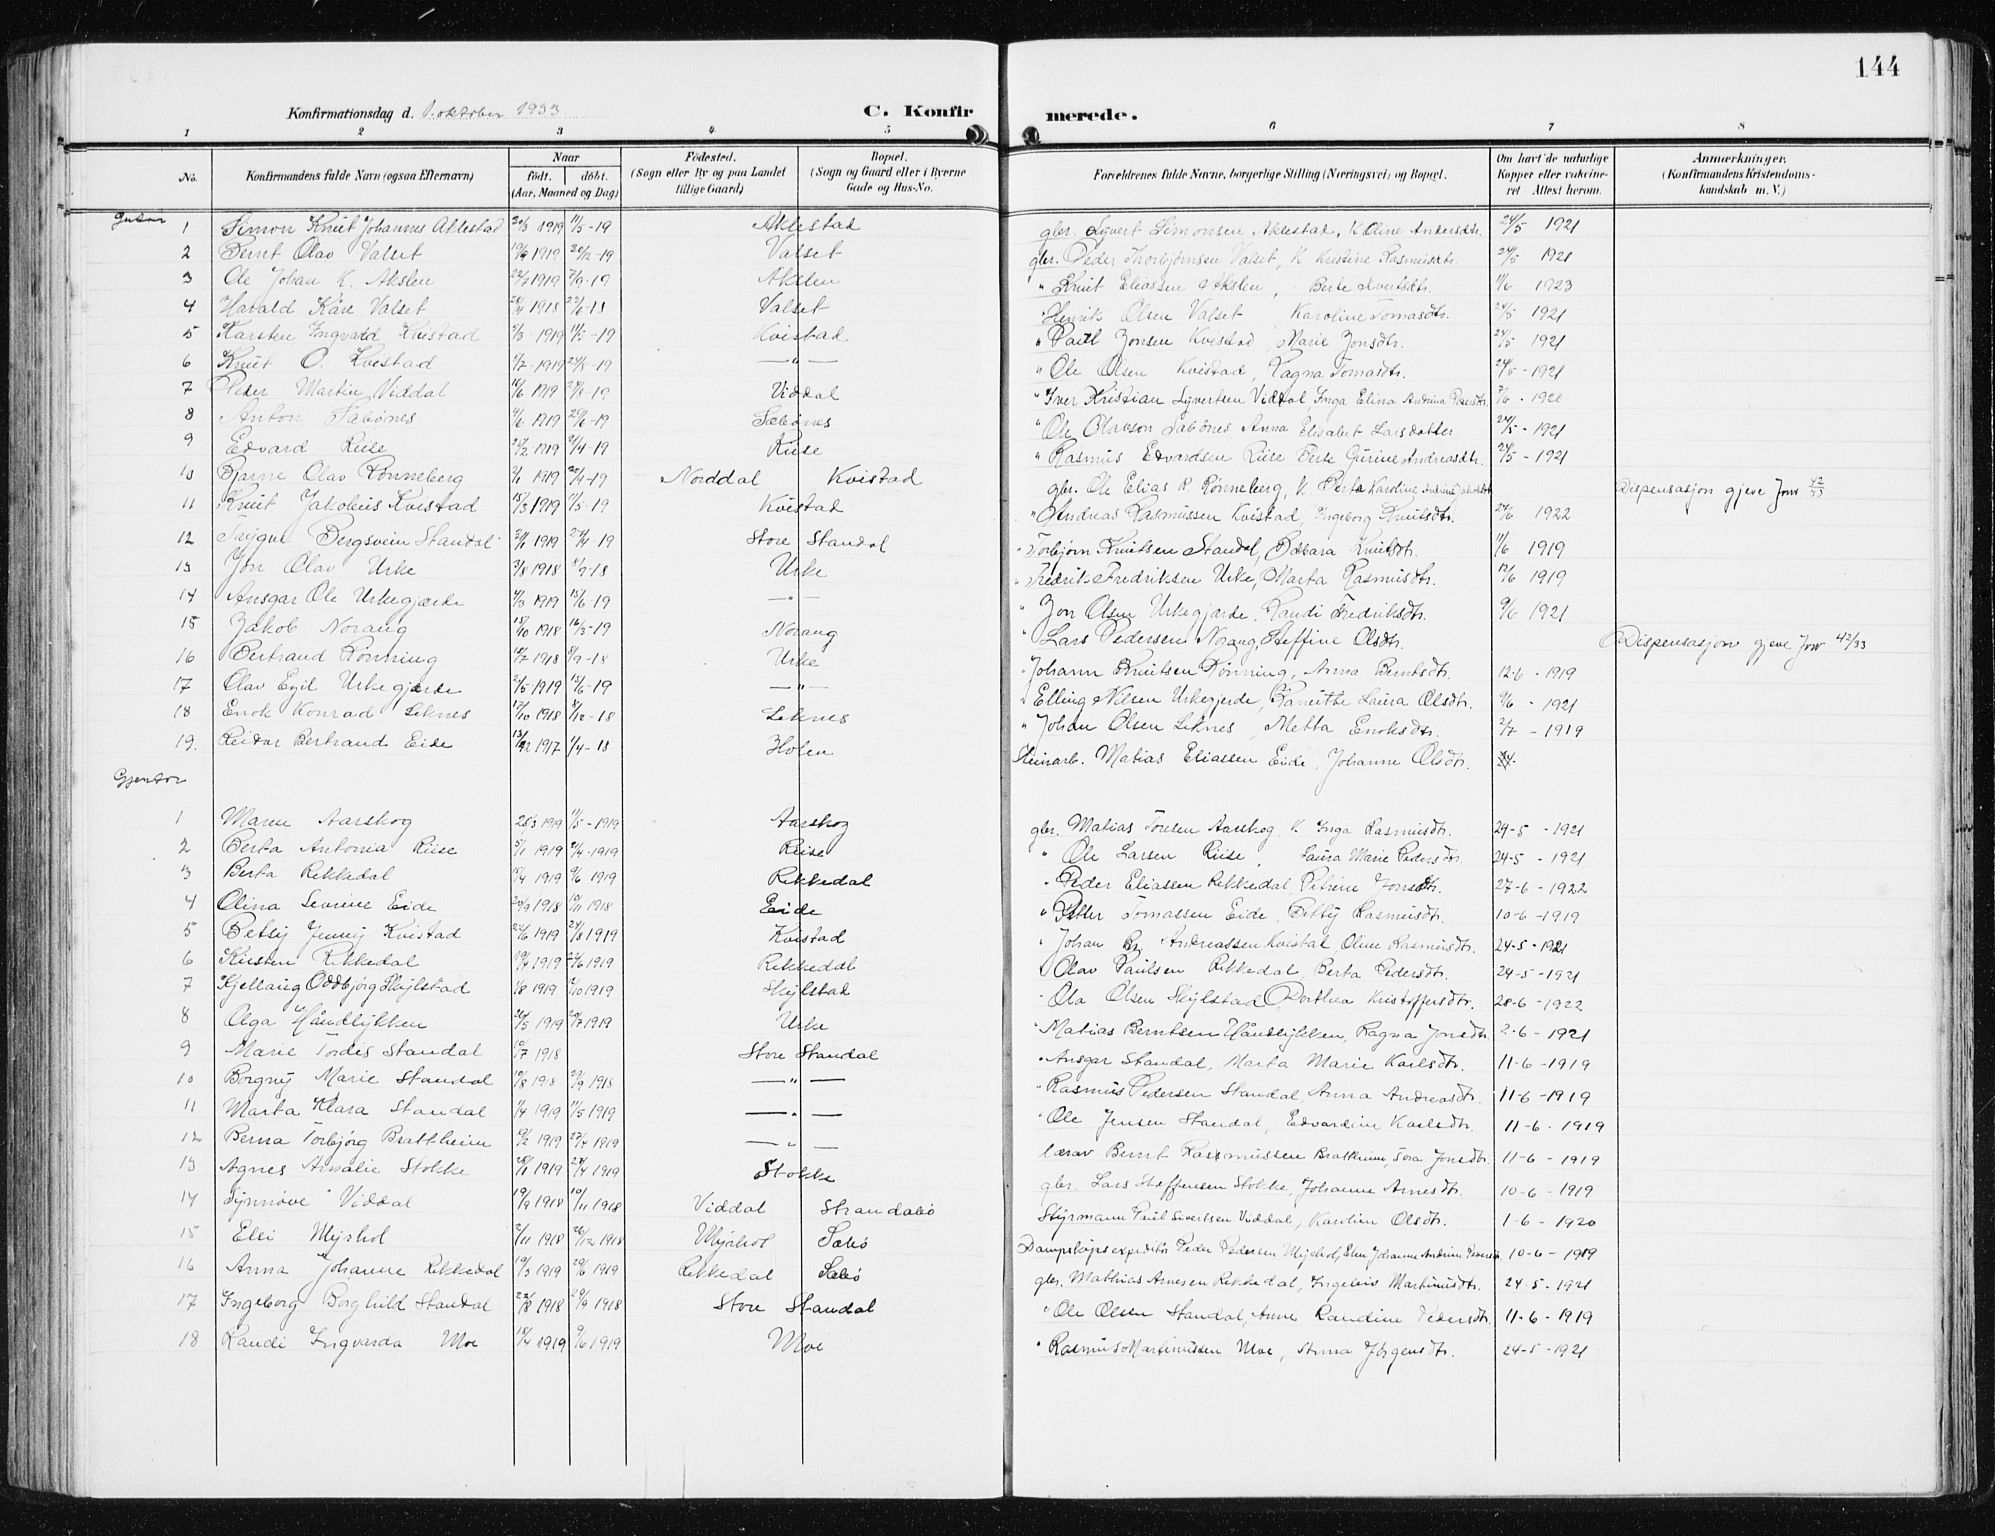 144
Konfirmationsdag d. 1 oktober 1933. C. Konfirmerede.
1 2 3 4 5 6 7 8
No. Konfirmandens fulde Navn (ogsaa Efternavn) Naar født. døbt. (Aar, Maaned og Dag) Fødested. (Sogn eller By og paa Landet tillige Gaard) Bopæl. (Sogn og Gaard eller i Byerne Gade og Hus-No. Forældrenes fulde Navne, borgerlige Stilling (Næringsvei) og Bopæl. Om havt de naturlige Kopper eller vakcineret. Attest herom. Anmærkninger. (Konfirmandens Kristendomskundskab m. V.)
Gutar
1 Simon Knut Johannes Aklestad 1919 11/5-19 Aklestad gbr. Syvert Simonsen Aklestad, K. Oline Andersdtr. 24/5 1921
2 Bernt Olav Valset 1919 Valset gbr. Peder Thorbjørnsen Valset, K. Kristine Rasmusdtr. 24/5 1921
3 Ole Johan K. Akslen 1919 Akslen " Knut Eliassen Akslen, Berte Knutsdtr. 11/6 1923
4 Harald Kåre Valset 1918 Valset Henrik Olsen Valset, Karoline Tomasdtr. 24/5 1921
5 Karsten Ingvald Kvistad 1919 11/5-19 Kvistad " Paul Jonsen Kvistad, Marie Jonsdtr. 24/5 1921
6 Knut O. Kvistad 1919 — " — " Ole Olsen Kvistad, Ragna Tomasdtr. 24/5-1921
7 Peder Martin Viddal 1919 Viddal " Iver Kristian Syvertsen Viddal, Inga Elina Andrina Pedersdtr. 7/6 - 1920
8 Anton Sæbönes 1919 Sæbönes " Ole Olavson Sæbönes Anna Elisabet Larsdotter 24/5 - 1921
9 Edvard Riise 1919 Riise " Rasmus Edvardsen Riise Berte Gurine Andreasdtr. 24/5 - 1921
10 Bjarne Olav Rönneberg 1919 Norddal Kvistad gbr. Ole Elias R. Rønneberg, K. Berta Karoline Andrine Jakobsdtr. Dispensasjon gjeve Jnr 42/33
11 Knut Jakobus Kvistad 15/3 1919 11/5-19 Kvistad " Andreas Rasmussen Kvistad, Ingeborg Knutsdtr. 24/6 1922
12 Trygve Bergsvein Standal 1919 27/4-19 Store Standal " Torbjørn Knutsen Standal, Barbara Knutsdtr. 11/6 1919
13 Jon Olav Urke 3/8 1918 8/9-18 Urke " Fredrik Fredriksen Urke, Marta Rasmusdtr. 12/6 1919
14 Ansgar Ole Urkegjærde 1919 15/6-19 — " — " Jon Olsen Urkegjærde, Randi Fredriksdtr. 9/6 1921
15 Jakob Norang 15/10 1918 16/3-19 Norang " Lars Pedersen Norang, Steffine Olsdtr. Dispensasjon gjeve Jnr 42/33
16 Bertrand Rönning 1918 8/9-18 Urke " Johann Knutsen Rönning, Anna Berntsdtr. 12-6 - 1919
17 Olav Egil Urkegjærde 2/5 1919 15/6-19 — " — " Elling Nilsen Urkegjerde, Ranuitte Laura Olsdtr. 9/6 - 1921
18 Enok Konrad Leknes 17/10 1918 8/12-18 Leknes " Johan Olsen Leknes, Metta Enoksdtr. 2/7 - 1919
19. Reidar Bertrand Eide 13/12 1917 1/4-18 Holen Steinarb. Matias Eliassen Eide, Johanne Olsdtr. 24-
Gjentor
1 Marie Aarskog 25/3 1919 11/5-1919 Aarskog gbr. Matias Toresen Aarskog, K. Inga Rasmusdtr. 24-5 - 1921
2 Berta Antonia Riise 5/1 1919 21/4-1919 Riise " Ole Larsen Riise, Laura Marie Pedersdtr. 24-5 - 1921
3 Berta Rekkedal 15/4 1919 9/6 1919 Rekkedal " Peder Eliassen Rekkedal, Petrine Jonsdtr. 27-6 - 1922
4 Olina Severine Eide 24/9 1918 10/11 1918 Eide " Petter Tomassen Eide, Betty Rasmusdtr. 10-6 - 1919
5 Betsy Jenny Kvistad 22/6 1919 24/8 1919 Kvistad " Johan Br. Andreassen Kvistad, Oline Rasmusdtr. 24-5-1921
6 Kirsten Rekkedal 19/4 1919 22/6 1919 Rekkedal " Olav Paulsen Rekkedal, Berta Pedersdtr. 24-5 - 1921
7 Kjellaug Oddbjørg Skylstad 1/8 1919 12/10 1919 Skylstad " Ola Olsen Skylstad Dorthea Kristoffersdtr. 28-6 - 1922
8 Olga Håndlykken 26/5 1919 20/7 1919 Urke " Matias Berntsen Håndlykken, Ragna Jonsdtr. 2-6 - 1921
9 Marie Tordis Standal 10/7 1918 Store Standal " Ansgar Standal, Marta Marie Karlsdtr. 11-6 - 1919
10 Borgny Marie Standal 10/8 1918 29/9 1918 — " — " Rasmus Pedersen Standal, Anna Andreasdtr. 11-6 - 1919
11 Marta Klara Standal 1/4 1919 11/5 1919 — " — " Ole Jensen Standal, Edvardine Karlsdtr. 11-6 - 1919
12 Berna Torbjørg Brattheim 9/2 1919 27/4 1919 — " — lærar Bernt Rasmussen Brattheim, Tora Jonsdtr. 11-6 - 1919
13 Agnes Amalie Stokke 28/1 1919 27/4 1919 Stokke gbr. Lars Steffensen Stokke, Johanne Arnesdtr. 10-6 - 1919
14 Synnøve Viddal 19/9 1918 10/11 1918 Viddal Standalsö Styrmann Paul Sivertsen Viddal, Karoline Olsdtr. 1-6 - 1920
15 Elli Myrhol 2/11 1918 26/12 1918 Myrhol Sæbö Dampskipsexpeditör Peder Pedersen Myrhol, Elen Johanne Andrine Pedersdtr. 10-6 - 1919
16 Anna Johanne Rekkedal 19/3 1919 29/6 1919 Rekkedal Sæbö gbr. Mathias Arnesen Rekkedal, Ingeleiv Martinusdtr. 24-5-1921
17 Ingeborg Borghild Standal 22/8 1918 29/9 1918 Store Standal " Ole Olsen Standal, Anne Randine Pedersdtr. 11-6 - 1919
18 Randi Ingvarda Moe 18/4 1919 9/6 1919 Moe " Rasmus Martinussen Moe, Anna Jörgensdtr. 24-5-1921